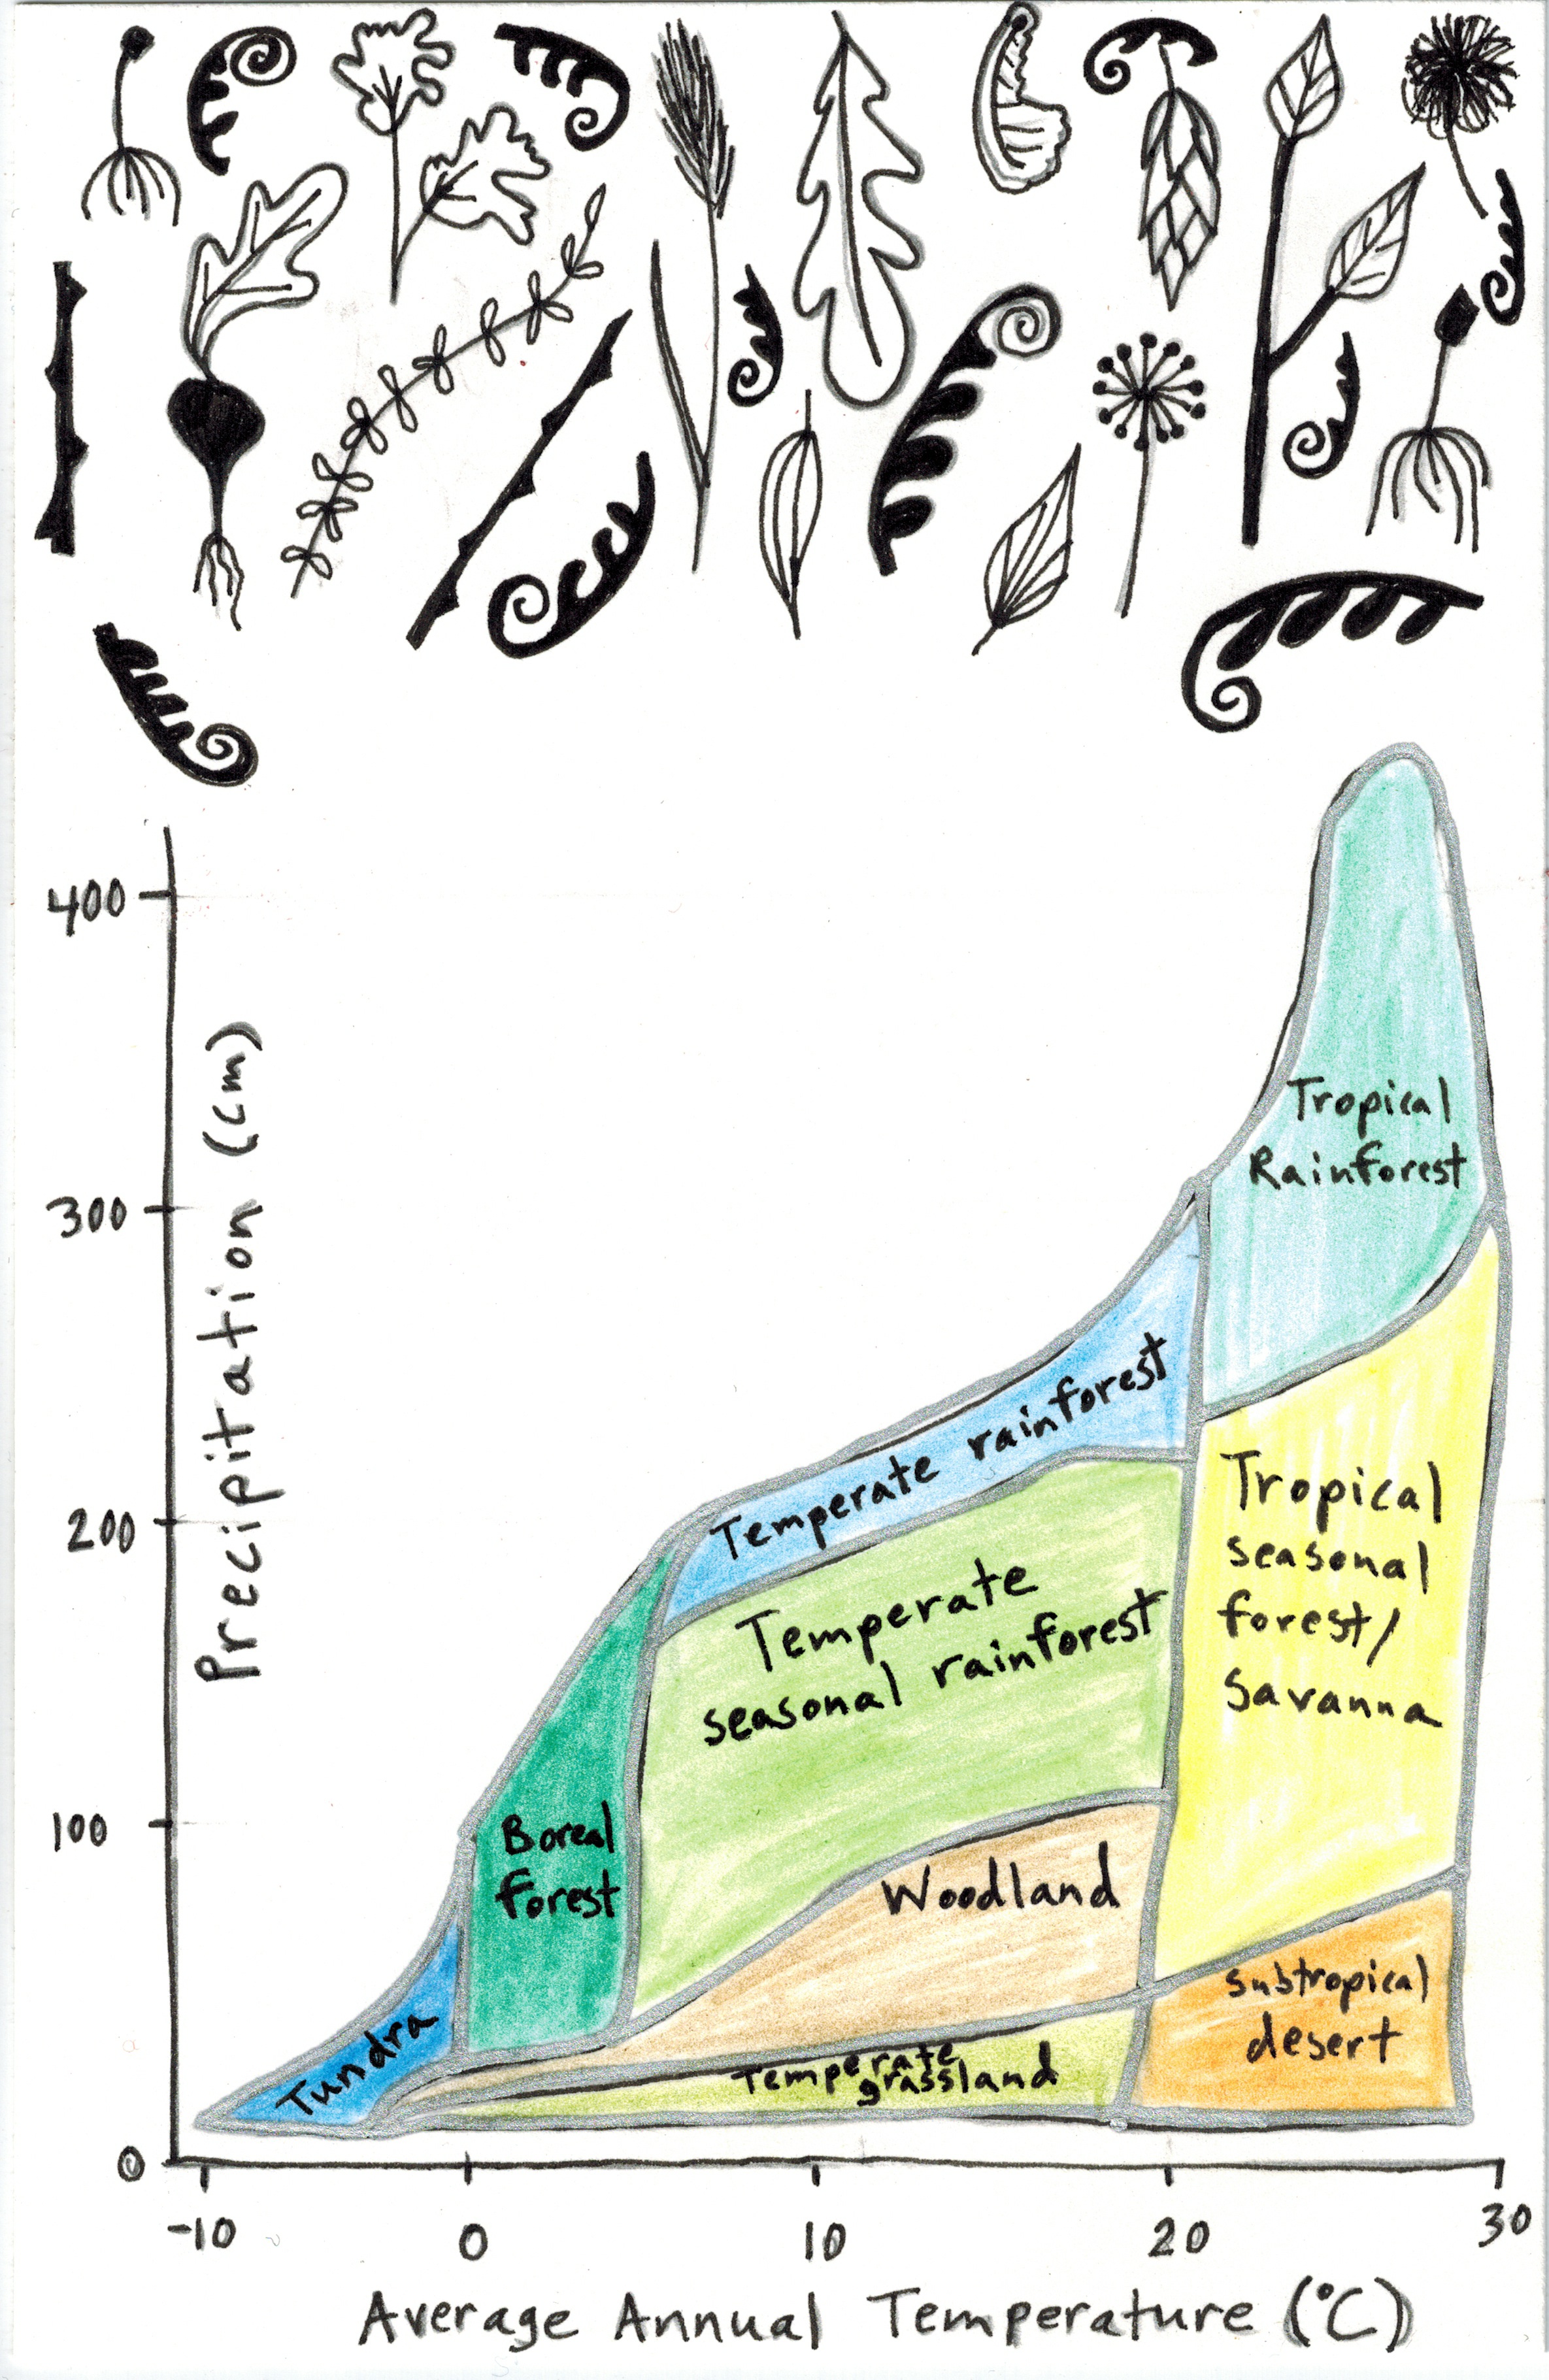 400
300
200
100
0
Precipitation (cm)
Tropical
Rainforest
Temperate rainforest
Tropical
seasonal
forest/
savanna
Temperate
seasonal rainforest
Boreal
forest
Woodland
subtropical
desert
Tundra
Temperate
grassland
-10 0 10 20 30
Average Annual Temperature (°C)